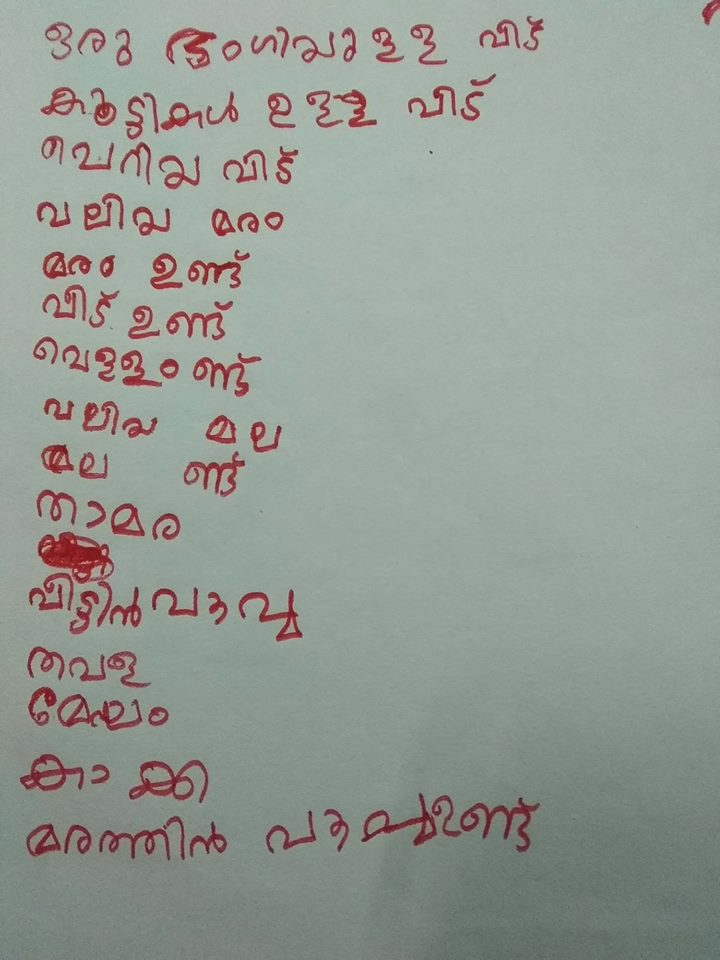 ഒരു ഭംഗിയുള്ള വീട്
കുട്ടികൾ ഉള്ള വീട്
ചെറിയ വീട്
വലിയ മരം
മരം ഉണ്ട്
വീട് ഉണ്ട്
വെള്ളം ണ്ട്
വലിയ മല
മല ണ്ട്
താമര
വീട്ടിൻ പൂവു
തവള
മേലം
കാക്ക
മരത്തിൻ പൂവുഉണ്ട്